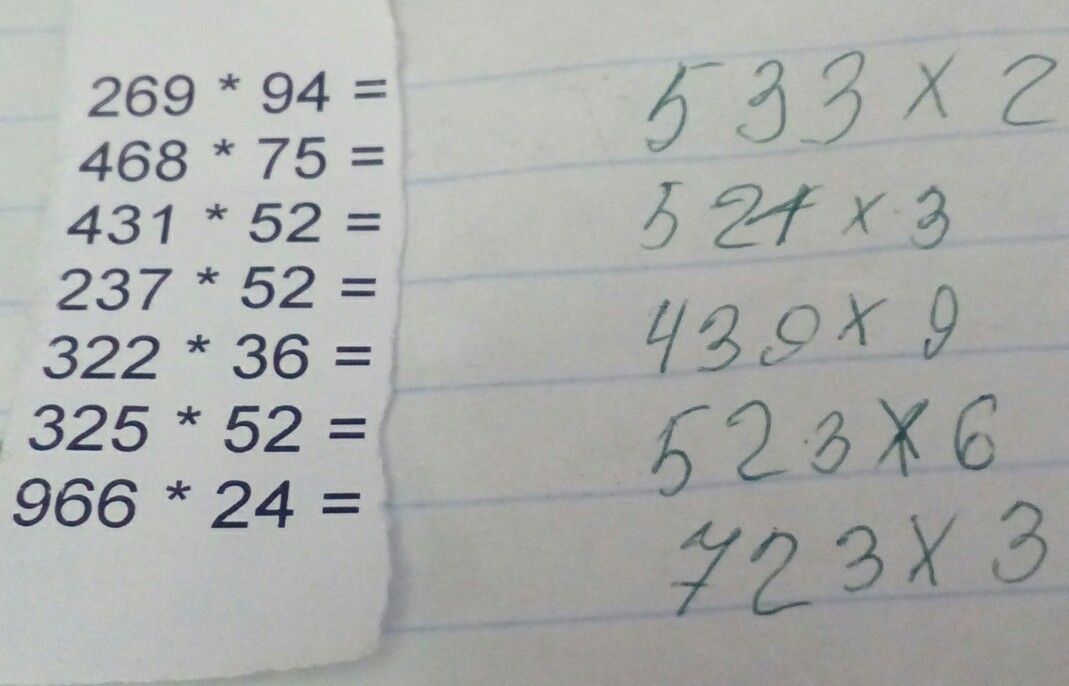 269 * 94 =
468 * 75 =
431 * 52 =
237 * 52 =
322 * 36 =
325 * 52 =
966 * 24 =
533 x 2
521 x 3
439 x 9
523 x 6
723 x 3